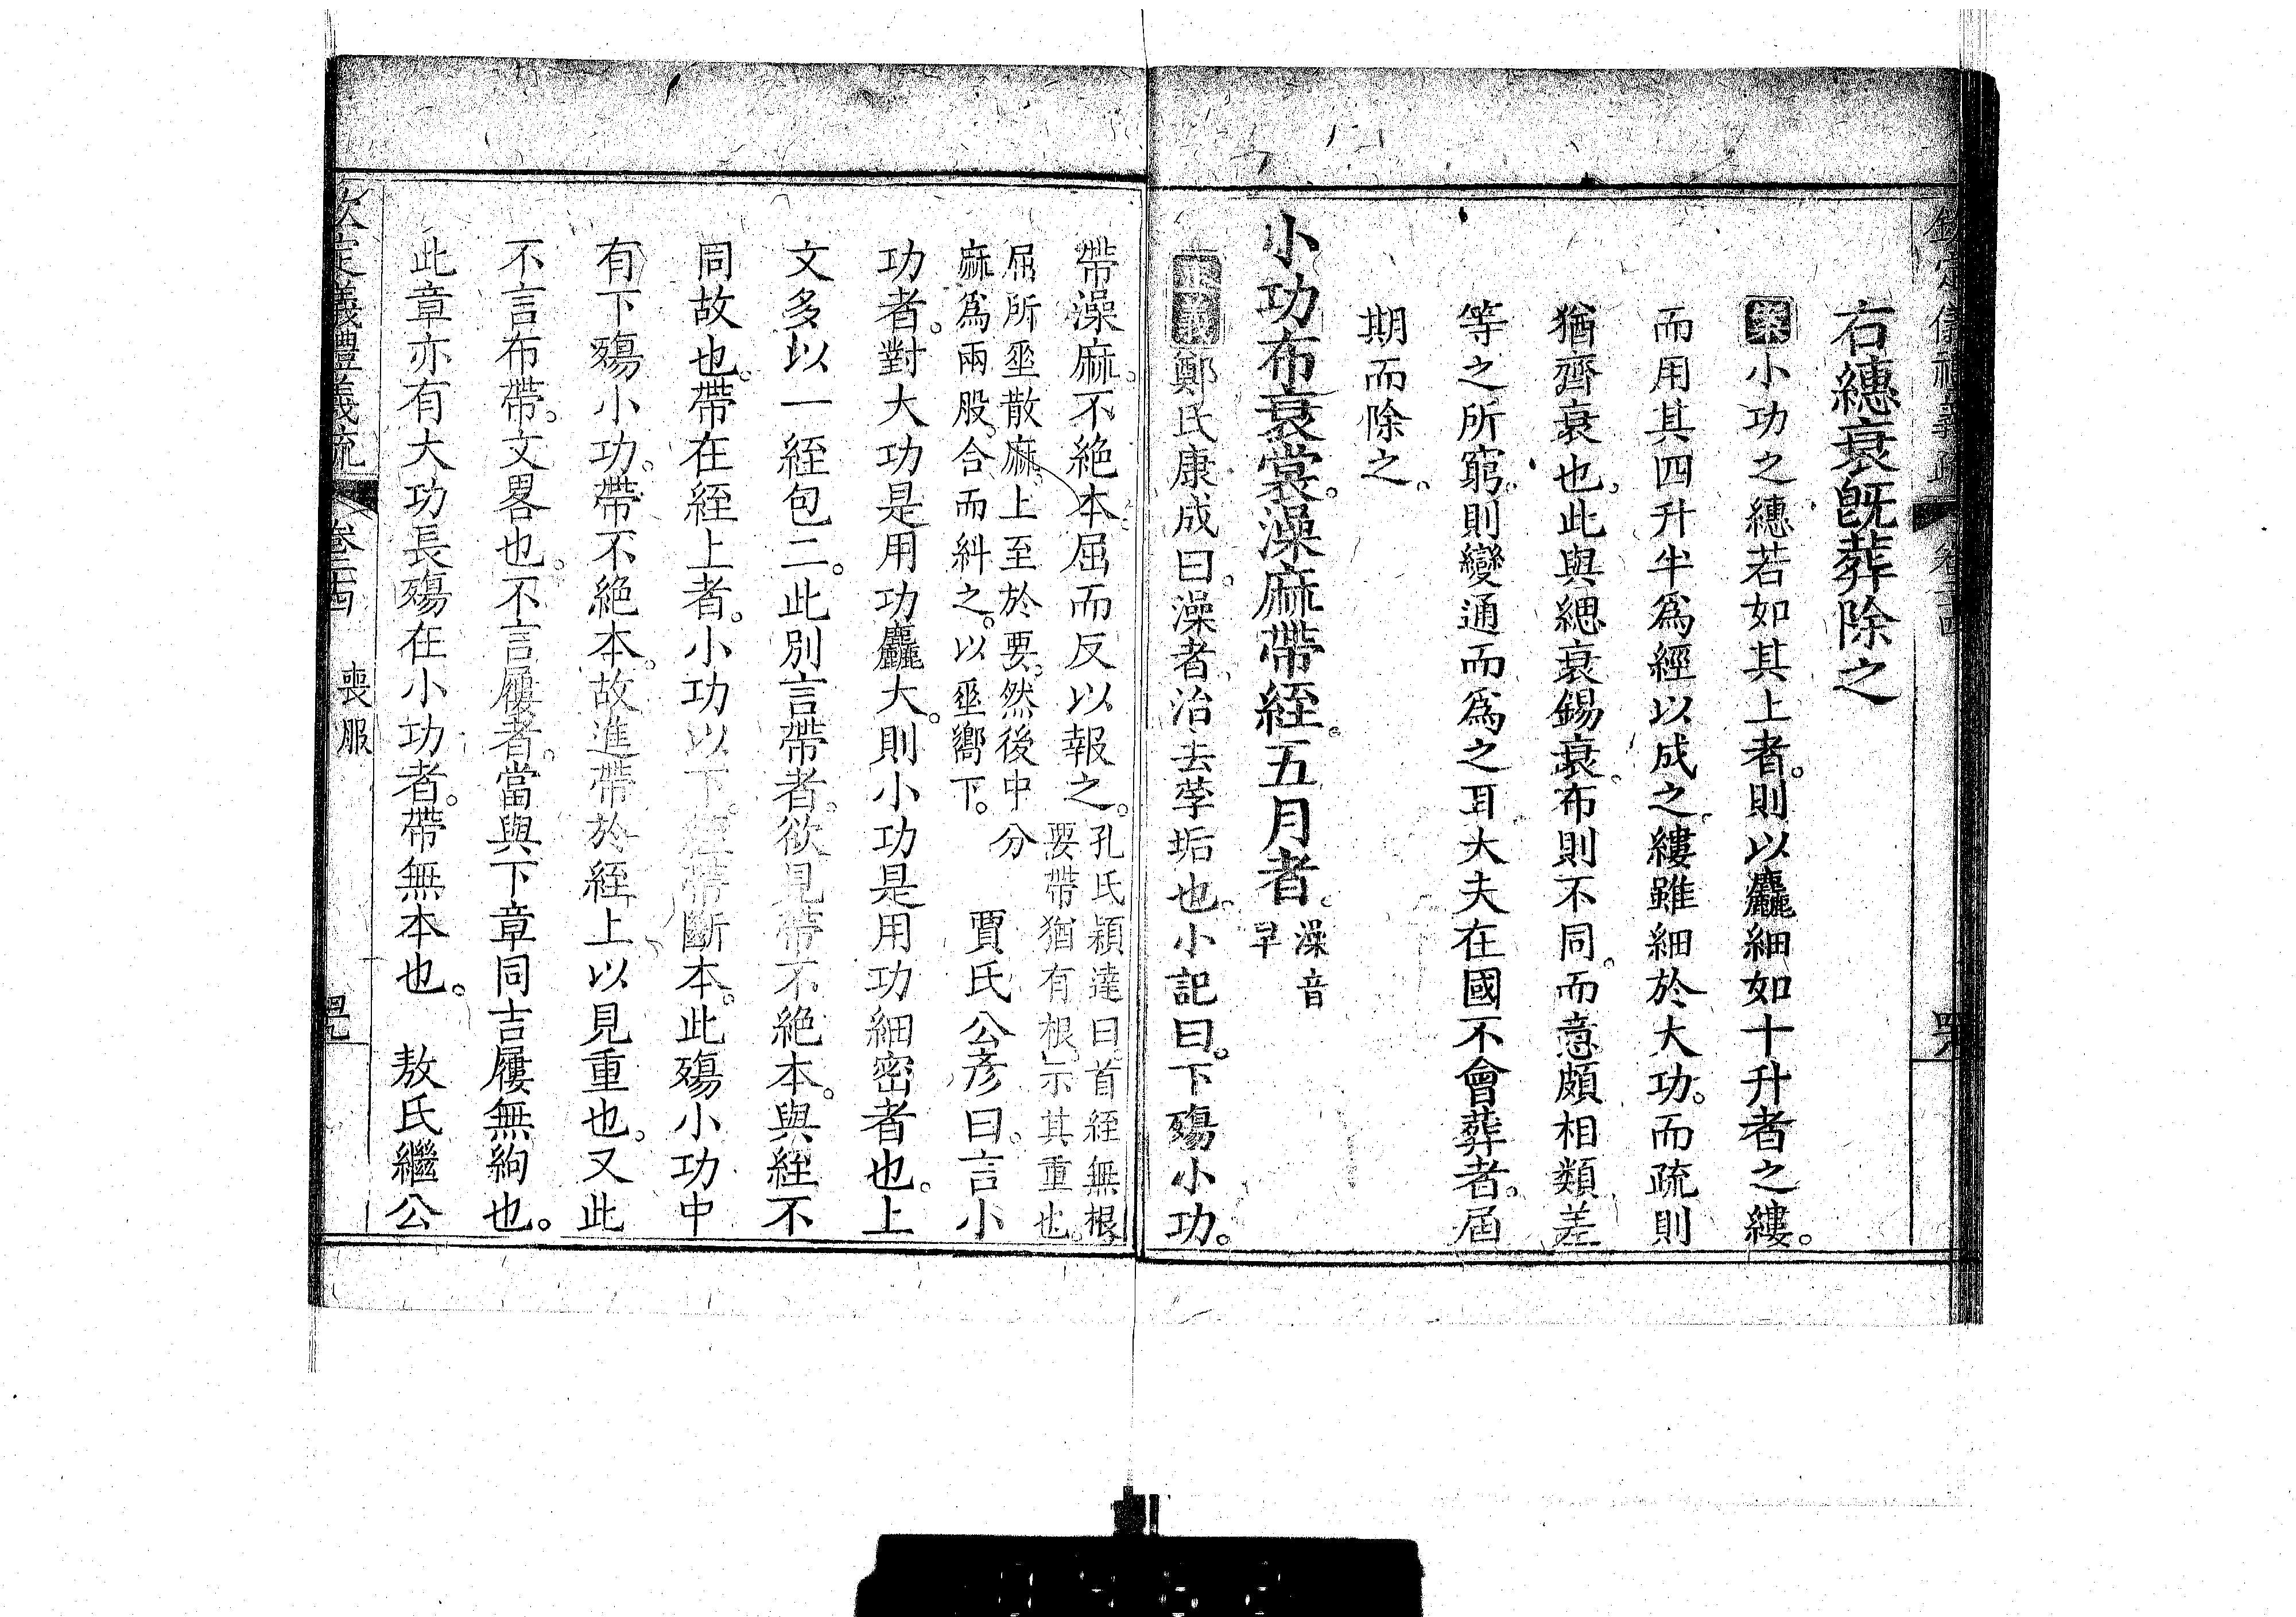 欽定儀禮義疏 卷二四
右繐衰既葬除之
案小功之繐若如其上者。則以麤細如十升者之縷。
而用其四升半爲經以成之。縷雖細於大功。而疏則
猶齊衰也。此與緦衰錫衰。布則不同。而意頗相類。差
等之所窮。則變通而爲之耳。大夫在國不會葬者。屆
期而除之。
小功布衰裳。澡麻帶絰。五月者。澡音
早
正義鄭氏康成曰。澡者。治去莩垢也。小記曰。下殤小功。
帶澡麻。不絕本。屈而反以報之。孔氏穎達曰。首絰無根。
要帶猶有根。示其重也。
屈所垂散麻。上至於要。然後中分
麻爲兩股。合而糾之。以垂嚮下。
賈氏公彦曰。言小
功者。對大功是用功麤大。則小功是用功細密者也。上
文多以一絰包二。此別言帶者。欲見帶不絕本。與絰不
同故也。帶在絰上者。小功以下。絰帶斷本。此殤小功中
有下殤小功。帶不絕本。故進帶於絰上。以見重也。又此
不言布帶。文畧也。不言屨者。當與下章同吉屨無絇也。
此章亦有大功長殤在小功者。帶無本也。 敖氏繼公
欽定儀禮義疏 卷二四 喪服